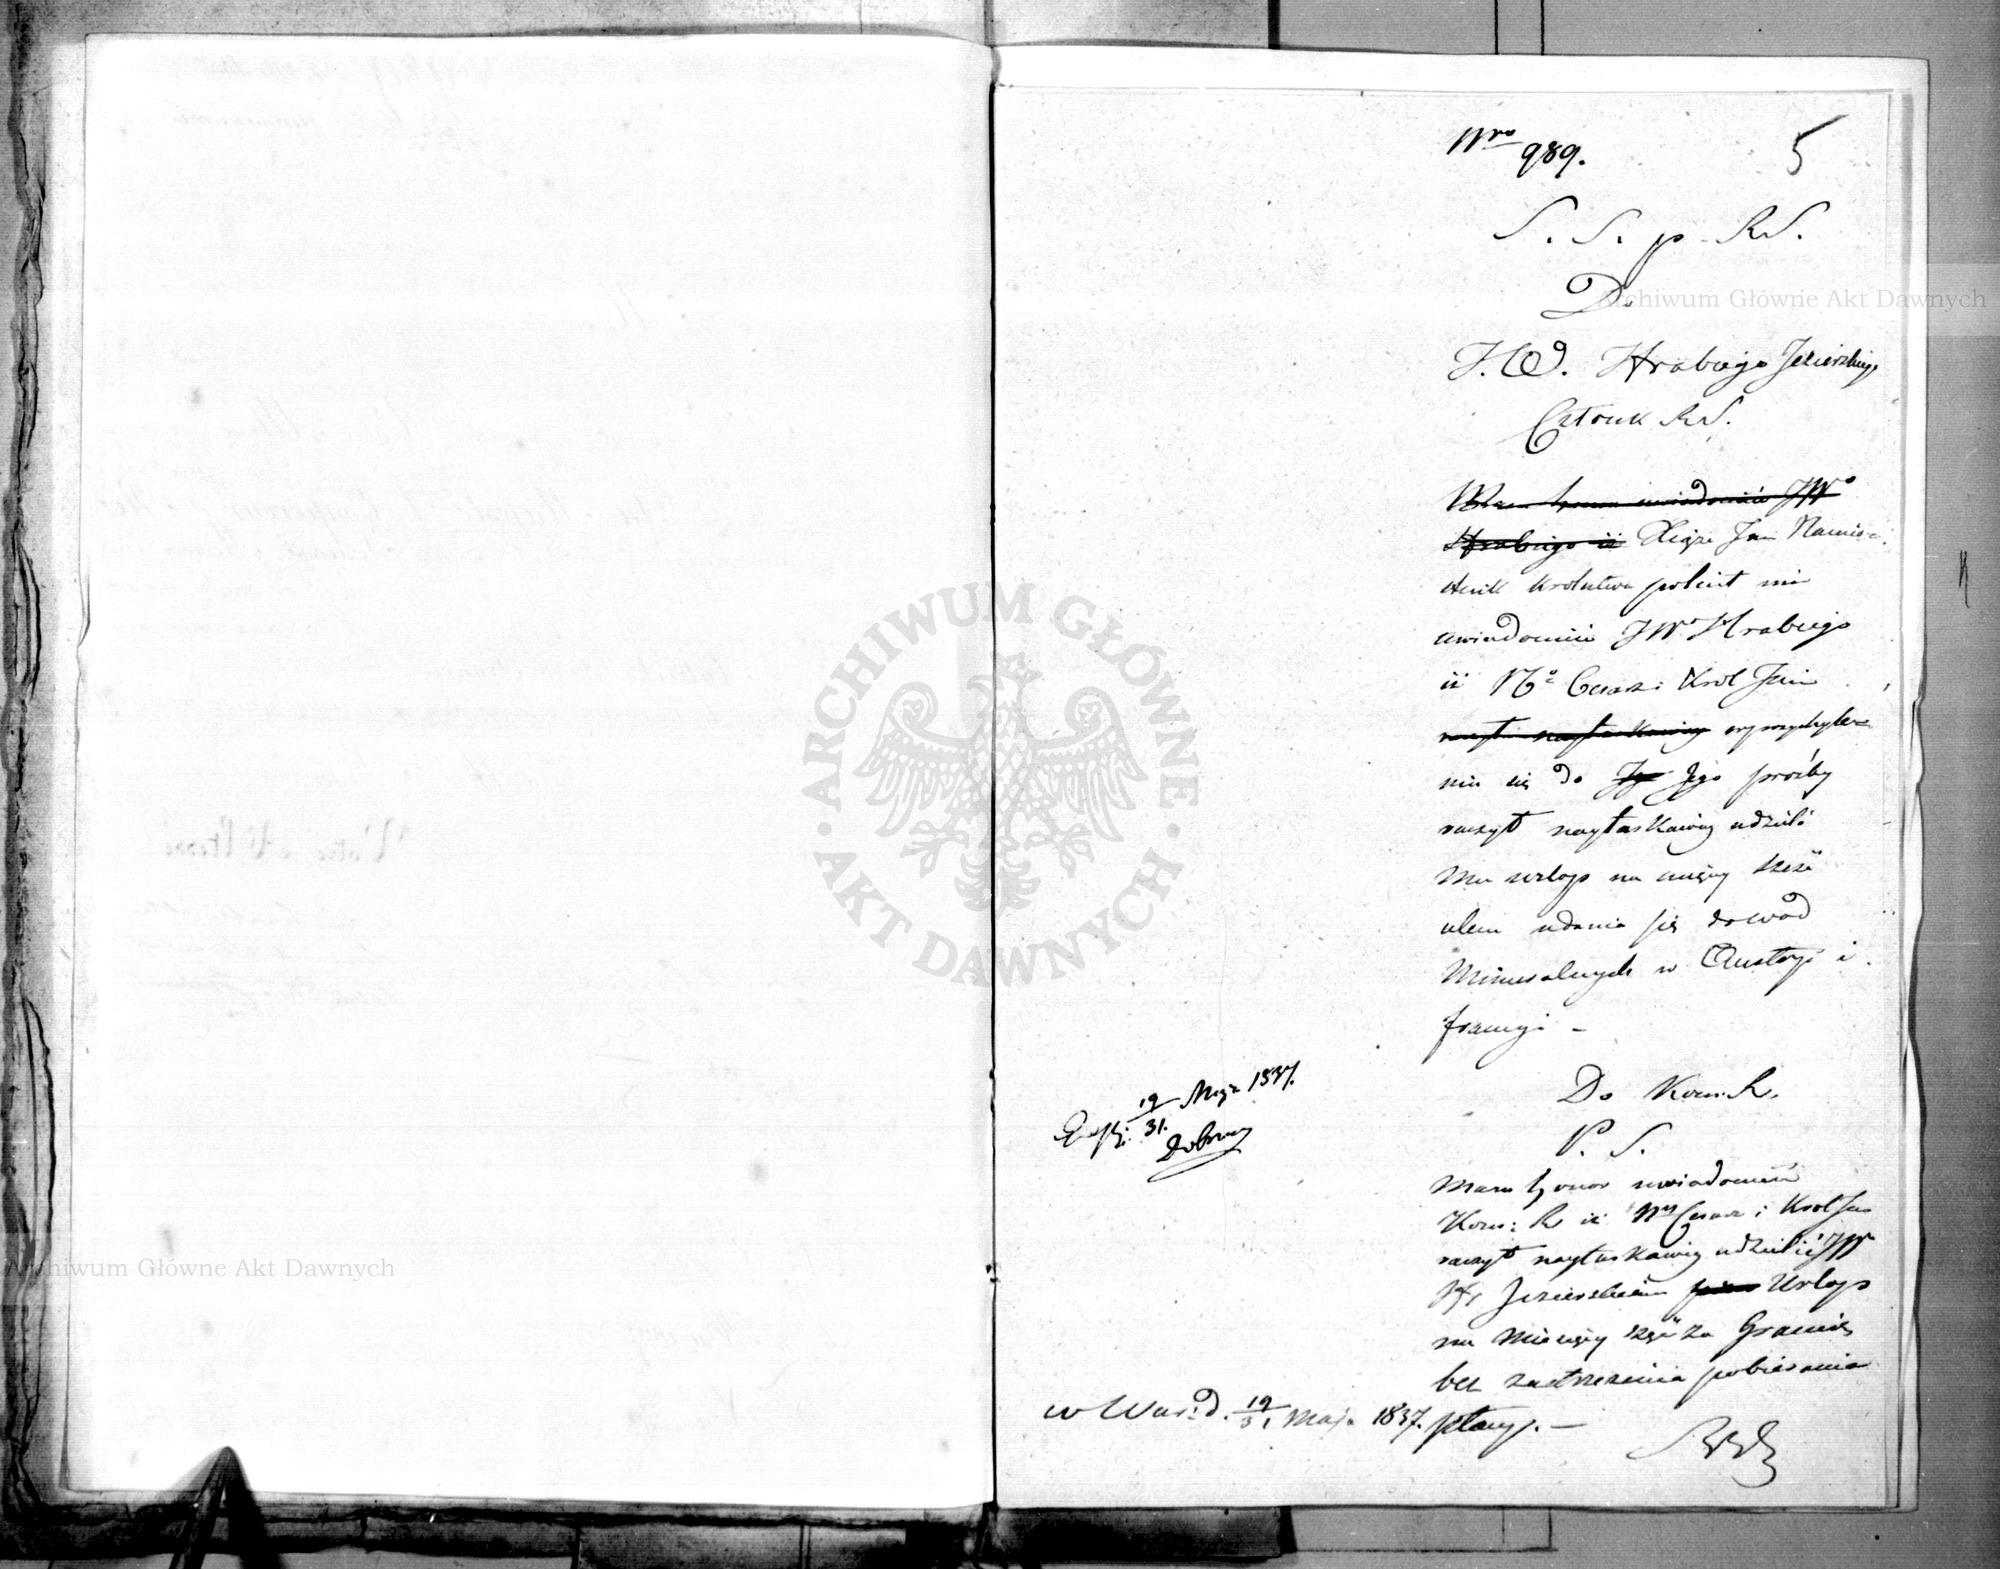 Nro 989.
5
S. S. p. RS.
Do
J.W. Hrabiego Jezierskiego
Członk RS.
Mam honor uwiadomić JWo
Hrabiego iż Xiąże Jmć Namies-
tnik Królestwa polecił mi
uwiadomić JW Hrabiego
iż NPo Cesarz i Król Jmć
raczył nayłaskawiey w przychyle-
niu się do Jego prośby
raczył nayłaskawiey udzielić
Mu urlop na miesięcy sześć
celem udania się do wód
Mineralnych w Austryi i
francyi –
Do Kom: R.
P. S.
Mam honor uwiadomić
Kom: R iż NPy Cesarz i Król Jmć
raczył nayłaskawiey udzielić JW
Hr Jezierskiemu Urlop
na miesięcy sześć za Granicę
bez zastrzeżenia pobierania
płacy. –
Exp: 19/31. Maja 1837.
Dobracz
w War: d. 19/31 Maja 1837.
Archiwum Główne Akt Dawnych
Archiwum Główne Akt Dawnych
ARCHIWUM GŁÓWNE · AKT DAWNYCH ·